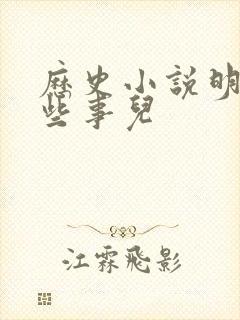 歷史小說明
些事兒
江霖飛影